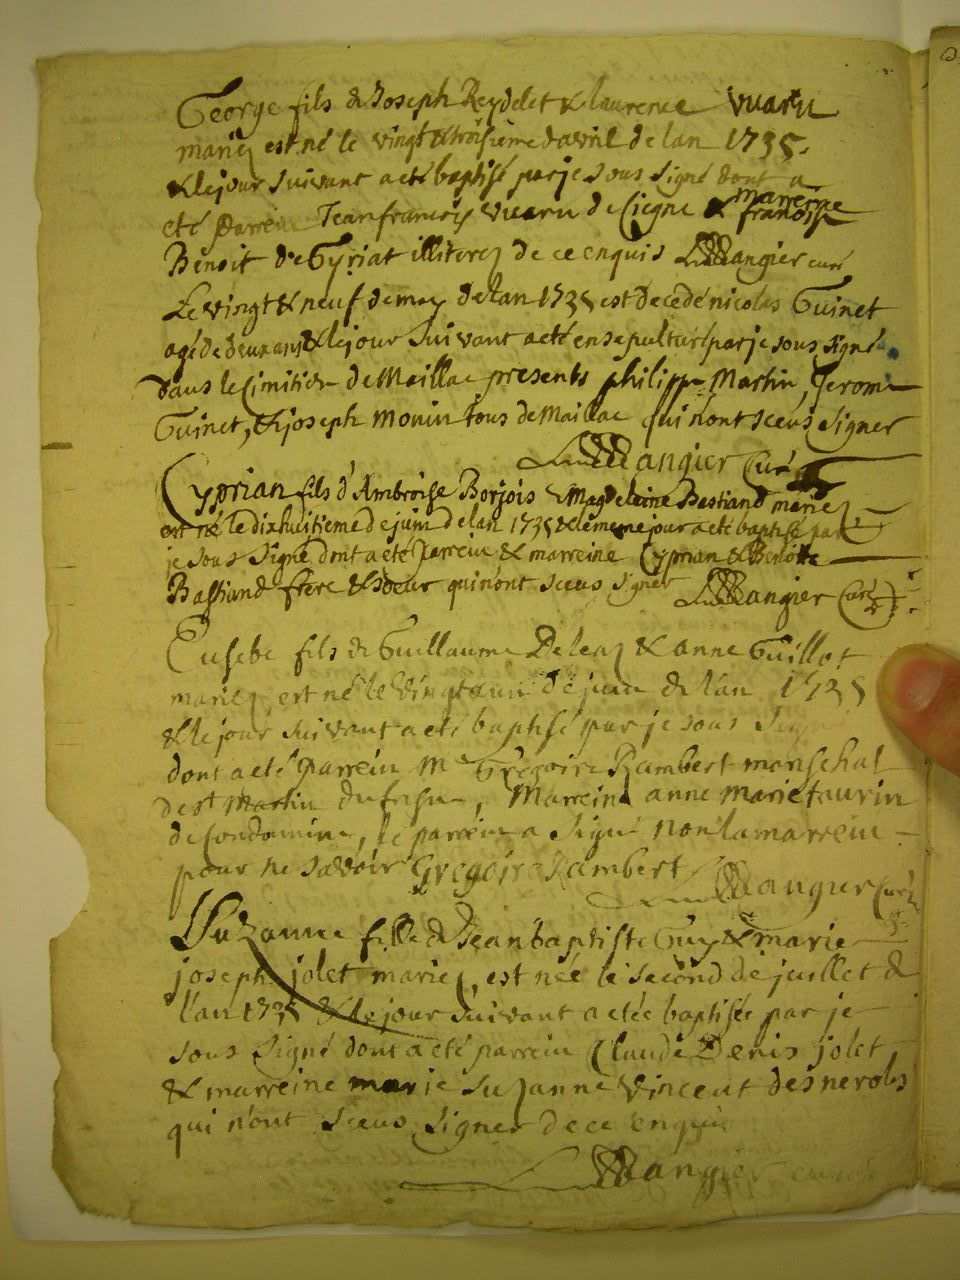 George fils de Joseph Reydelet & laurence vuaru
mariez est né le vingt & troisieme davril de lan 1735.
& le jour suivant a eté baptisé par je sous signé dont a
eté parrein Jean francois vuaru de Ciegne & marreine
francoise
Benoit de Gyriat illiterez de ce enquis Mangier curé
Le vingt & neuf de may de lan 1735 est decedé nicolas Guinet
agé de deux ans & le jour suivant a eté ensepulturé par je sous signé
dans le Cimitier de Maillac presents philippe Martin, Jerome
Guinet, & joseph monin tous de Maillac qui n'ont sceus signer
Mangier Curé
Cyprian fils d'Ambroise Borjois & Magdeleine Bastiand mariez
est né le dixhuitieme de juin de lan 1735 & le meme jour a eté baptisé par
je sous signé dont a eté parrein & marreine Cyprian & Benoitte
Bastiand frere & soeur qui n'ont sceus signer Mangier Curé
Eusebe fils de Guillaume & anne Guillot
mariez est né le vingt & un de juin de l'an 1735
& le jour suivant a eté baptisé par je sous signé
dont a eté parrein Mre Gregoire Rambert marechal
de st Martin du fresne, Marreine anne marie taurin
de Condamine, le parrein a signé non la marreine
pour ne sçavoir Gregoire Rambert
Mangier Curé
Suzanne fille de Jean baptiste Guy & marie
joseph jolet mariez, est née le second de juillet de
l'an 1735 & le jour suivant a etée baptisée par je
sous signé dont a eté parrein Claude Denis jolet
& marreine marie suzanne vincent des nerols
qui n'ont sceus signer de ce enquis
Mangier curé